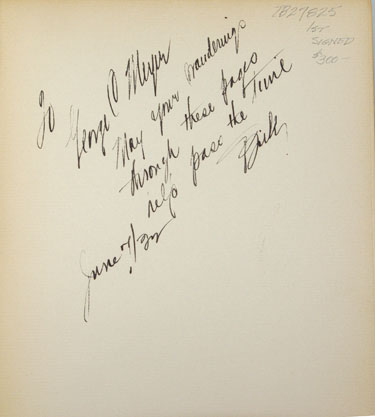 2827825
1st
SIGNED
$300-
To
George O Meyer
May your wanderings
through these pages
help pass the time
Dick
June